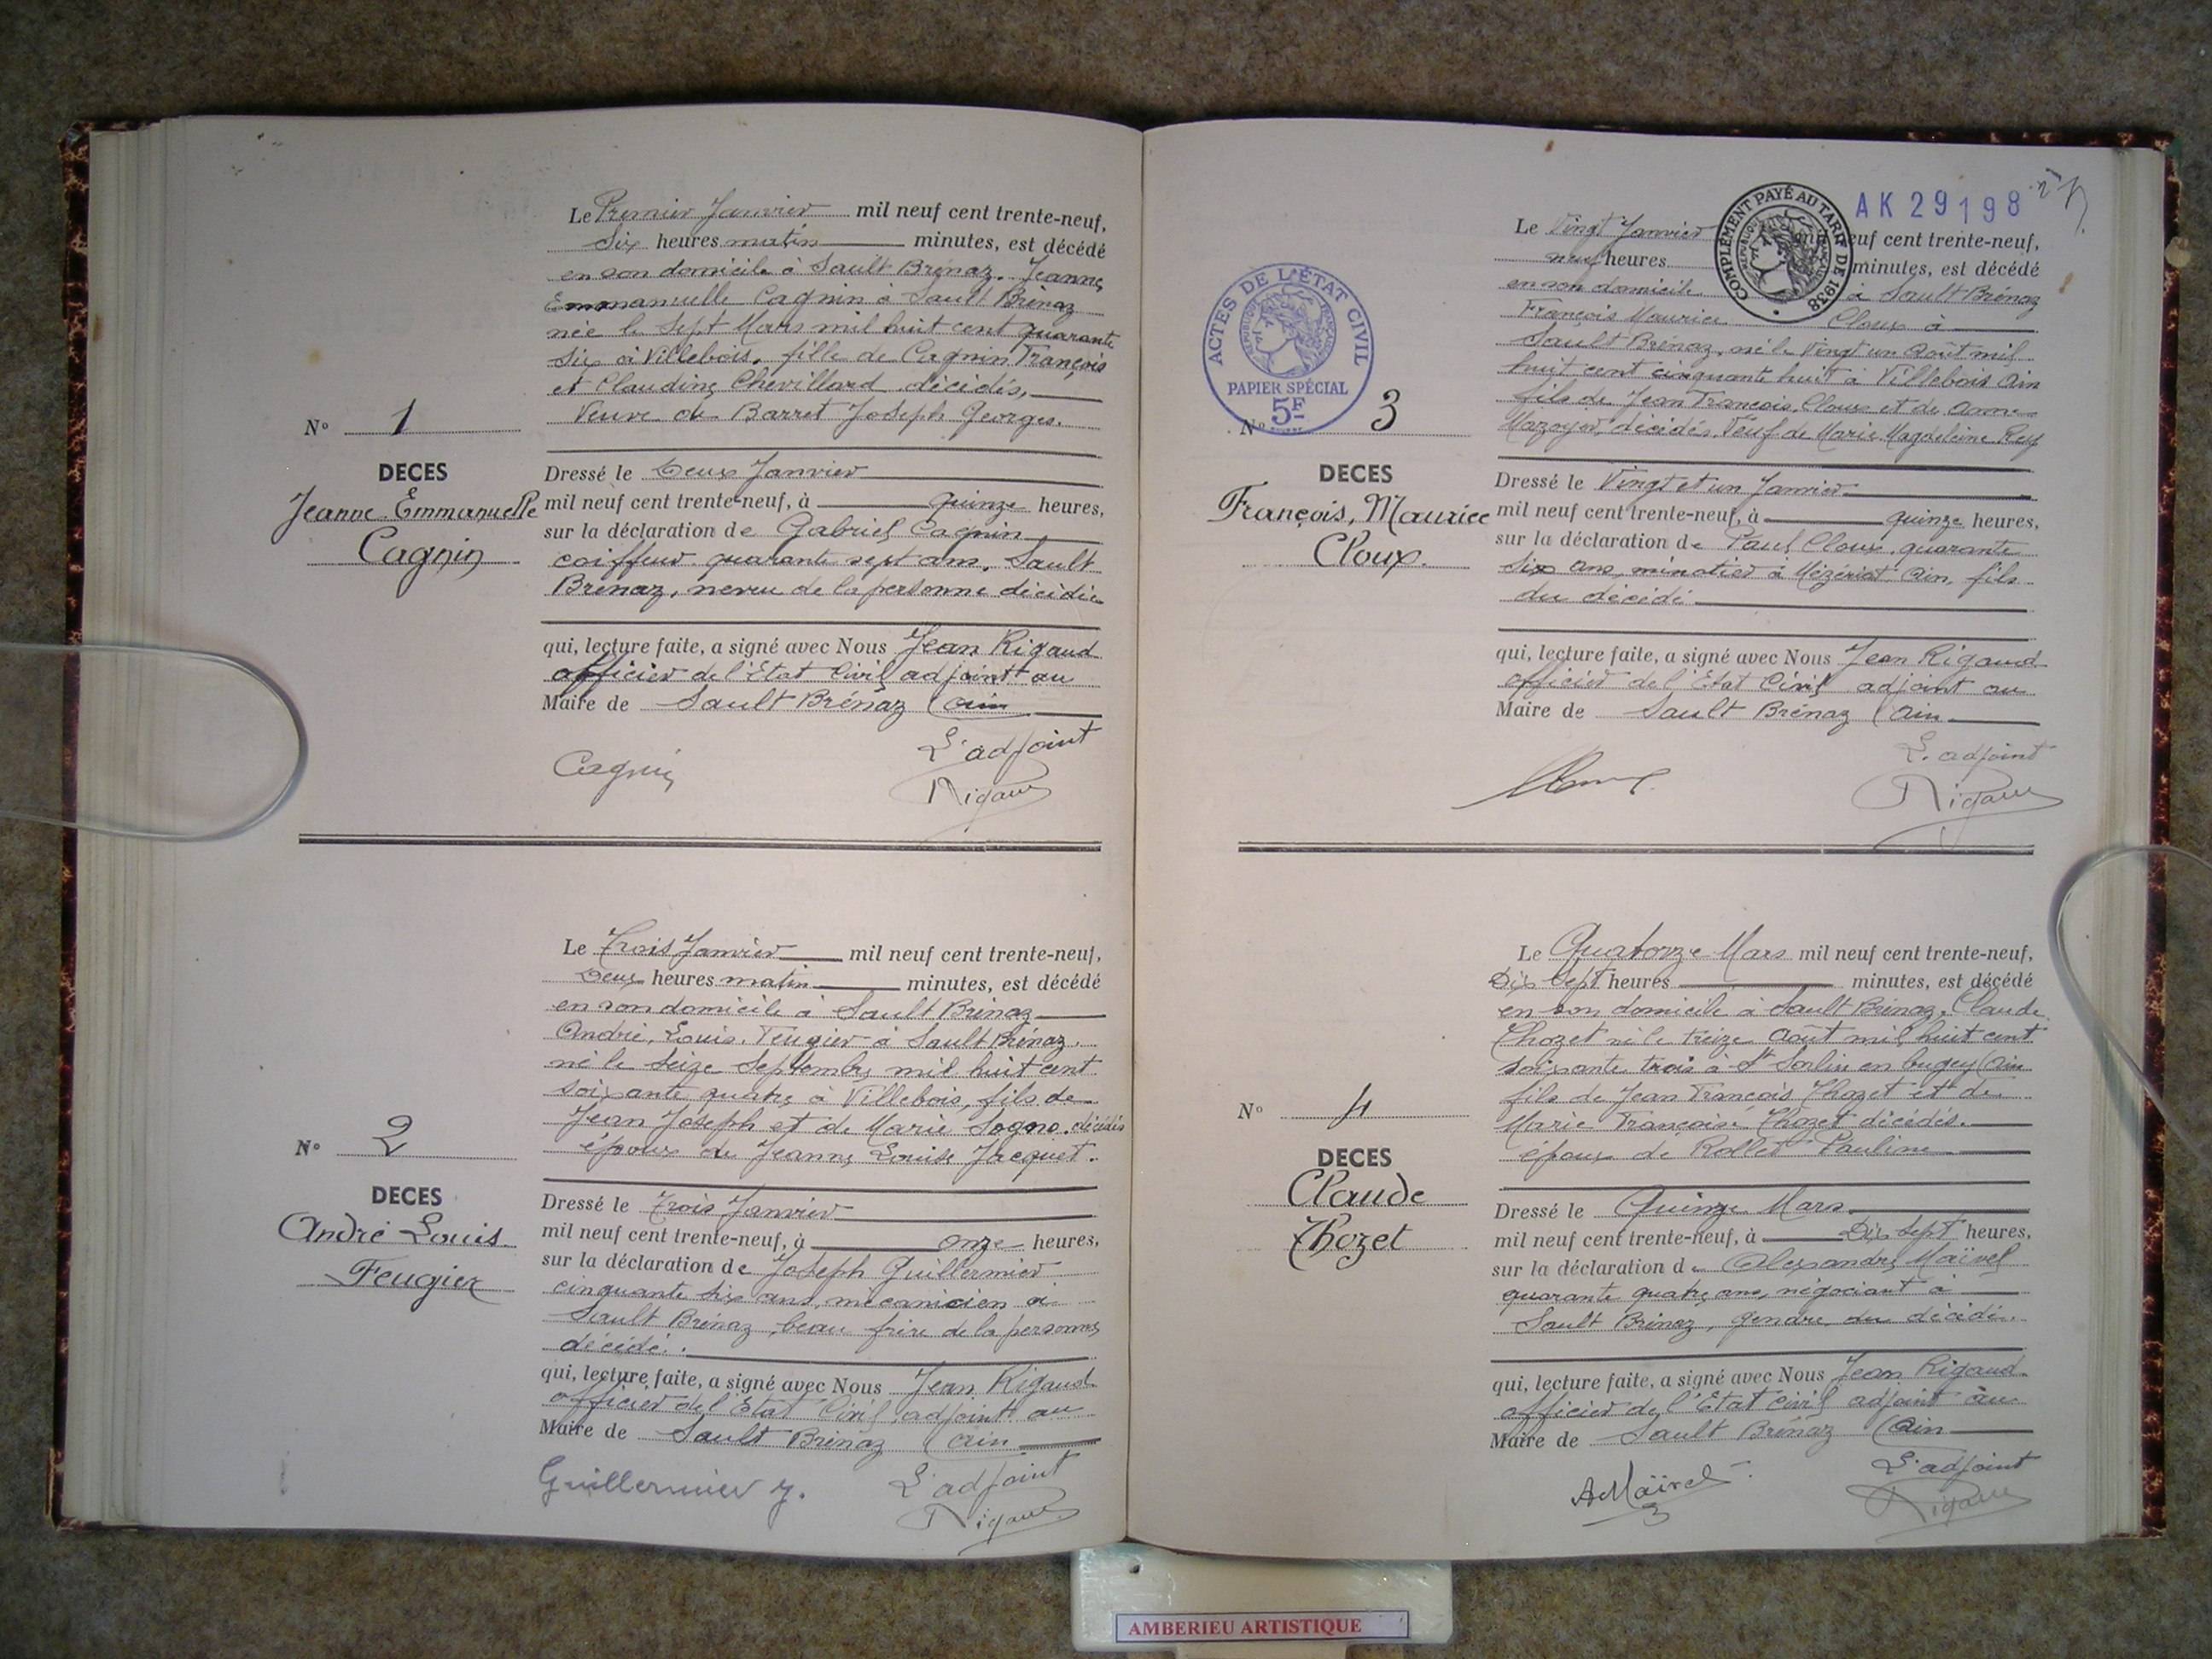 Le Premier Janvier mil neuf cent trente-neuf,
Six heures matin minutes, est décédé
en son domicile à Sault Brénaz. Jeanne
Emmanuelle Cagnin à Sault Brénaz
née le Sept Mars mil huit cent quarante
six à Villebois, fille de Cagnin François
et Claudine Chevillard décédés,
Veuve de Barret Joseph Georges.
N° 1
DECES
Jeanne Emmanuelle
Cagnin
Dressé le Deux Janvier
mil neuf cent trente-neuf, à quinze heures,
sur la déclaration de Gabriel Cagnin
coiffeur quarante sept ans, Sault
Brénaz, neveu de la personne décédée
qui, lecture faite, a signé avec Nous Jean Rigaud
officier de l'Etat Civil adjoint au
Maire de Sault Brénaz (Ain
Cagnin
L'adjoint
Rigaud
Le Trois Janvier mil neuf cent trente-neuf,
Deux heures matin minutes, est décédé
en son domicile à Sault Brénaz
André, Louis, Feugier à Sault Brénaz,
né le seize Septembre mil huit cent
soixante quatre à Villebois, fils de
Jean Joseph et de Marie Sogno. décédés
époux de Jeanne Louise Jacquet.
N° 2
DECES
André Louis
Feugier
Dressé le Trois Janvier
mil neuf cent trente-neuf, à onze heures,
sur la déclaration de Joseph Guillermier
cinquante six ans, mécanicien à
Sault Brénaz, beau frère de la personne
décédé.
qui, lecture faite, a signé avec Nous Jean Rigaud
officier de l'Etat Civil, adjoint au
Maire de Sault Brénaz (Ain
Guillermier J.
L'adjoint
Rigaud
AK 29198
COMPLÉMENT PAYÉ AU TARIF DE 1938
REPUBLIQUE FRANÇAISE
ACTES DE L'ÉTAT CIVIL
REPUBLIQUE FRANÇAISE
PAPIER SPÉCIAL
5F
Le Vingt Janvier mil neuf cent trente-neuf,
neuf heures minutes, est décédé
en son domicile à Sault Brénaz
François Maurice Cloux à
Sault Brénaz, né le Vingt un Août mil
huit cent cinquante huit à Villebois Ain
fils de Jean François Cloux et de Anne
Mazoyer, décédés, Veuf de Marie Magdeleine Rey
N° 3
DECES
François, Maurice
Cloux.
Dressé le Vingt et un Janvier
mil neuf cent trente-neuf, à quinze heures,
sur la déclaration de Paul Cloux, quarante
six ans, minotier à Mézériat Ain, fils
du décédé
qui, lecture faite, a signé avec Nous Jean Rigaud
officier de l'Etat Civil adjoint au
Maire de Sault Brénaz (Ain
L'adjoint
Rigaud
Le Quatorze Mars mil neuf cent trente-neuf,
Dix Sept heures minutes, est décédé
en son domicile à Sault Brénaz, Claude
Thozet né le treize Août mil huit cent
soixante trois à St Sorlin en bugey (Ain
fils de Jean François Thozet et de
Marie Françoise Thozet décédés.
époux de Rollet Pauline
N° 4
DECES
Claude
Thozet
Dressé le Quinze Mars
mil neuf cent trente-neuf, à Dix Sept heures,
sur la déclaration de Alexandre Maïvel
quarante quatre ans, négociant à
Sault Brénaz, gendre du décédé.
qui, lecture faite, a signé avec Nous Jean Rigaud
officier de l'Etat civil adjoint au
Maire de Sault Brénaz (Ain
A Maïvel
L'adjoint
Rigaud
AMBERIEU ARTISTIQUE